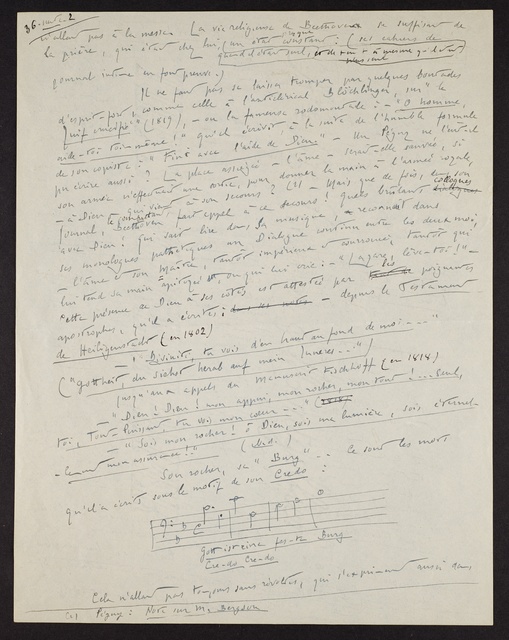 36. suite 2
n'allait pas à la messe. La vie religieuse de Beethoven se suffisait de
la prière, qui était chez lui un état constant : (ses cahiers de
journal intime en font preuve.)
quand il était seul,
Il ne faut pas se laisser tromper par quelques boutades
d'esprit-fort, comme celle à l'anticlérical Blöchlinger, sur "le
Juif crucifié" (1819), – ou la fameuse rodomontade : – "O homme,
aide-toi toi-même," qu'il écrivit à la suite de l'humble formule
de son copiste : "Fini avec l'aide de Dieu." – Un Péguy ne l'eût-il
pu écrire aussi ? La place assiégée – l'âme – serait-elle sauvée, si
son armée n'effectuait une sortie, pour donner la main à l'armée royale,
– à Dieu – qui vient à son secours ? (1) – Mais que de fois,
journal, Beethoven fait appel à ce secours ! Quels brûlants colloques
avec Dieu ! Qui sait lire dans sa musique, reconnaît dans
ses monologues pathétiques un Dialogue continu entre les deux moi,
– l'âme et son Maître, tantôt impérieux et courroucé, tantôt qui
lui tend sa main apitoyée, ou qui lui crie : – "Lazare, lève-toi !" –
Cette présence de Dieu à ses côtés est attestée par les poignantes
apostrophes, qu'il a écrites : – depuis le Testament
de Heiligenstadt (en 1802)
– "Divinité, tu vois d'en haut au fond de moi – – – "
("Gottheit du siehst herab auf mein Inneres...")
jusqu'aux appels du Manuscrit Fischhoff (en 1818)
"Dieu ! Dieu ! mon appui, mon rocher, mon tout !... Seul,
toi, Tout-Puissant, tu vois mon cœur – – – "
"Sois mon rocher ! ô Dieu, sois ma lumière, sois éternel-
lement mon assurance !" (ibid.)
Son rocher, sa "Burg" .. Ce sont les mots
qu'il a écrits sous le motif de son Credo :
Gott ist eine feste Burg
Cre-do Cre-do
Cela n'allait pas toujours sans révoltes, qui s'expriment aussi dans
(1) Péguy : Note sur M. Bergson